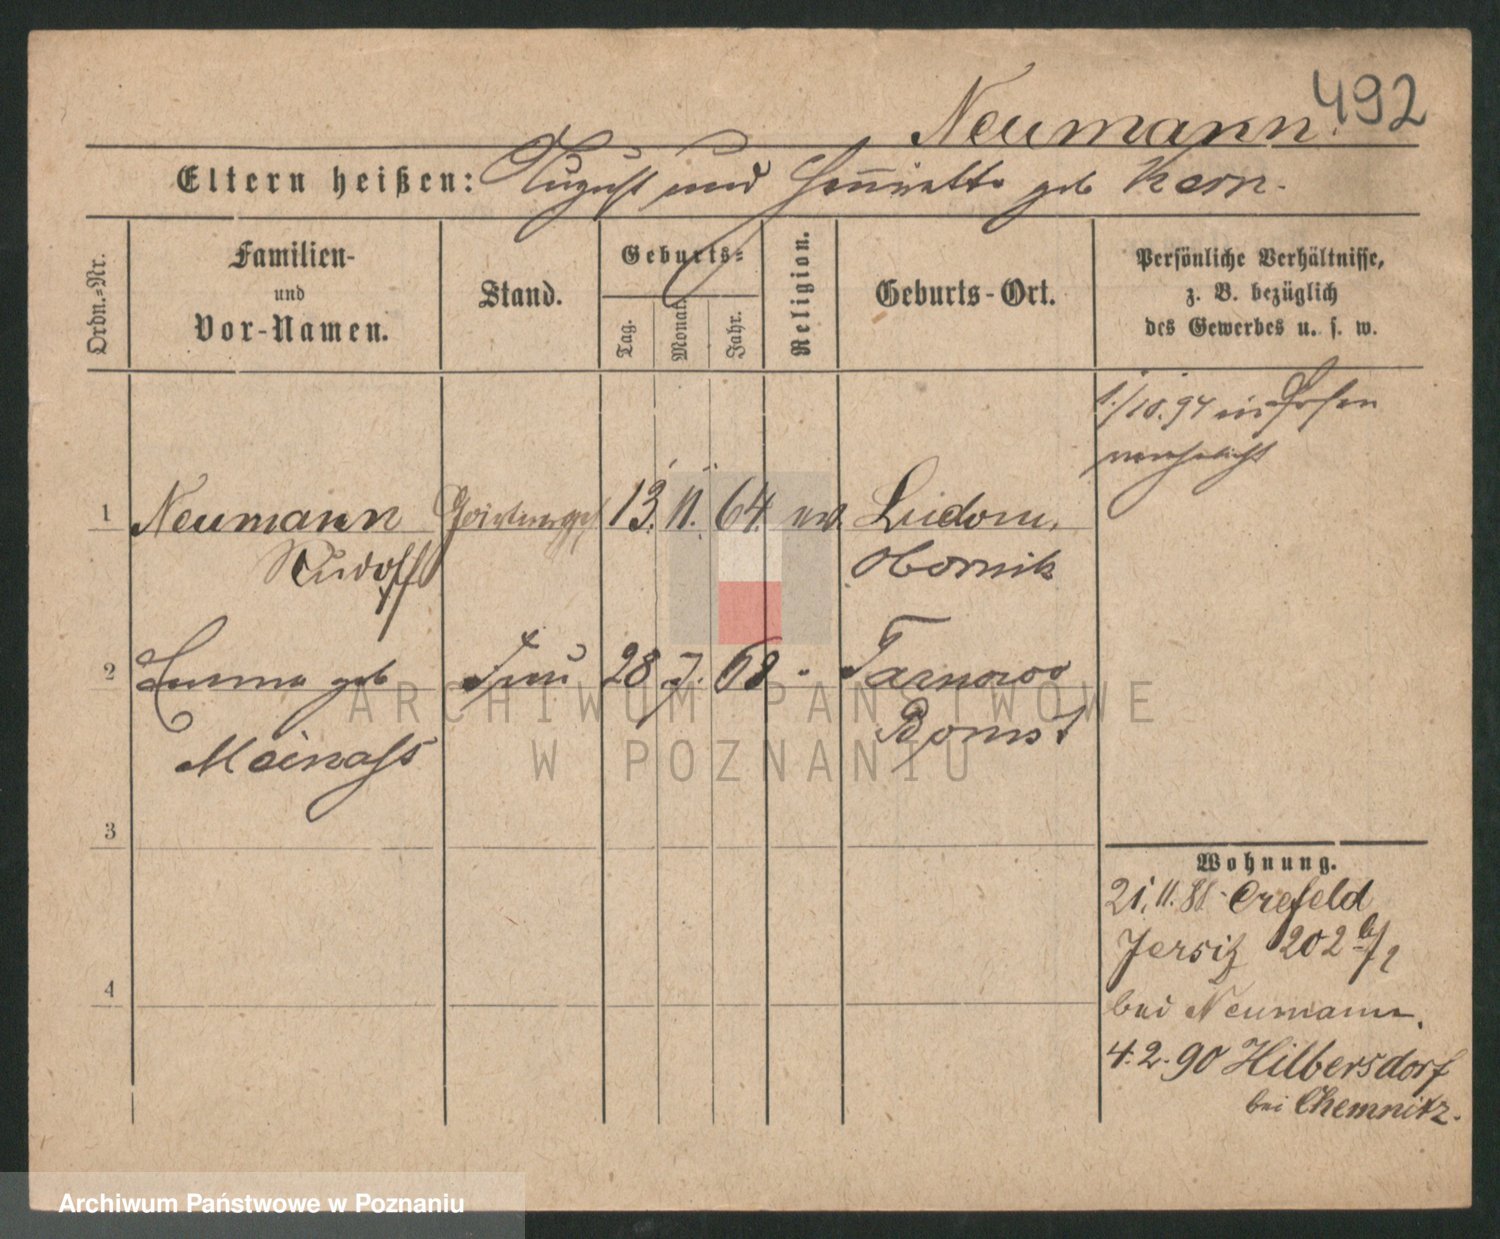 492
Neumann.
Eltern heißen: August und Henriette geb Kern.
Ordn.-Nr.
Familien-
und
Vor-Namen.
Stand.
Geburts-
Tag.
Monat.
Jahr.
Religion.
Geburts-Ort.
Persönliche Verhältnisse,
z. B. bezüglich
des Gewerbes u. s. w.
1./10.94 in Posen
verehelicht
1 Neumann 13. 11. 64. ev. Ludom,
Rudolf Obornik
2 Emma geb Frau 28 7. 68 " Tarnowo
Bomst
3
4
Wohnung.
21.11.88 Crefeld
Jersitz 202
bei Neumann.
4.2.90 Hilbersdorf
bei Chemnitz.
ARCHIWUM PAŃSTWOWE
W POZNANIU
Archiwum Państwowe w Poznaniu